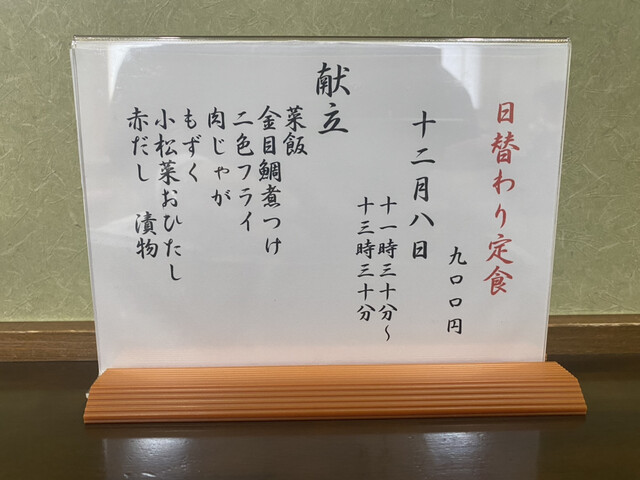 日替わり定食
九〇〇円
十二月八日
十一時三十分~
十三時三十分
献立
菜飯
金目鯛煮つけ
二色フライ
肉じゃが
もずく
小松菜おひたし
赤だし 漬物